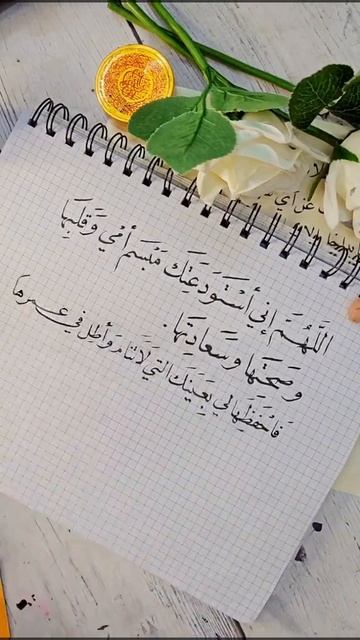 عن أي
اللَّهُمَّ إني أَسْتَودَعتِكَ مَبْسَم أمي وَقلبِها
وصحتِها وسعَادِتها .
فَاحْفَظِهالي بِعَينِكَ التي لَاتنَام وَأطِل في عمرها